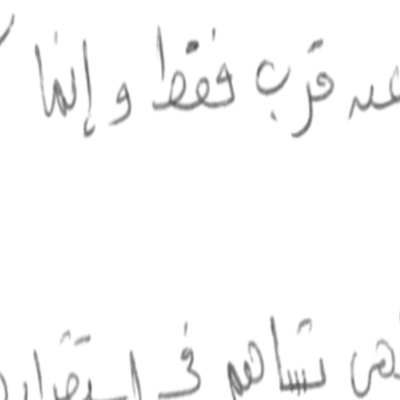 عن قرب فقط وإنما
هي تساهم في استقرار